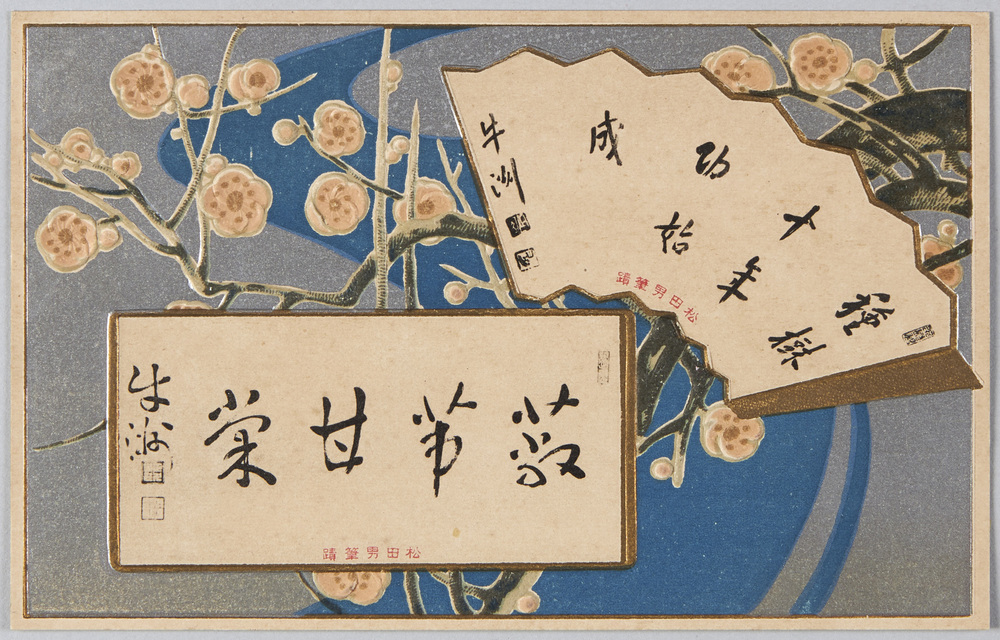 種樹
十年
功始
成
牛洲
松田男筆蹟
蔽芾甘棠
牛洲
松田男筆蹟